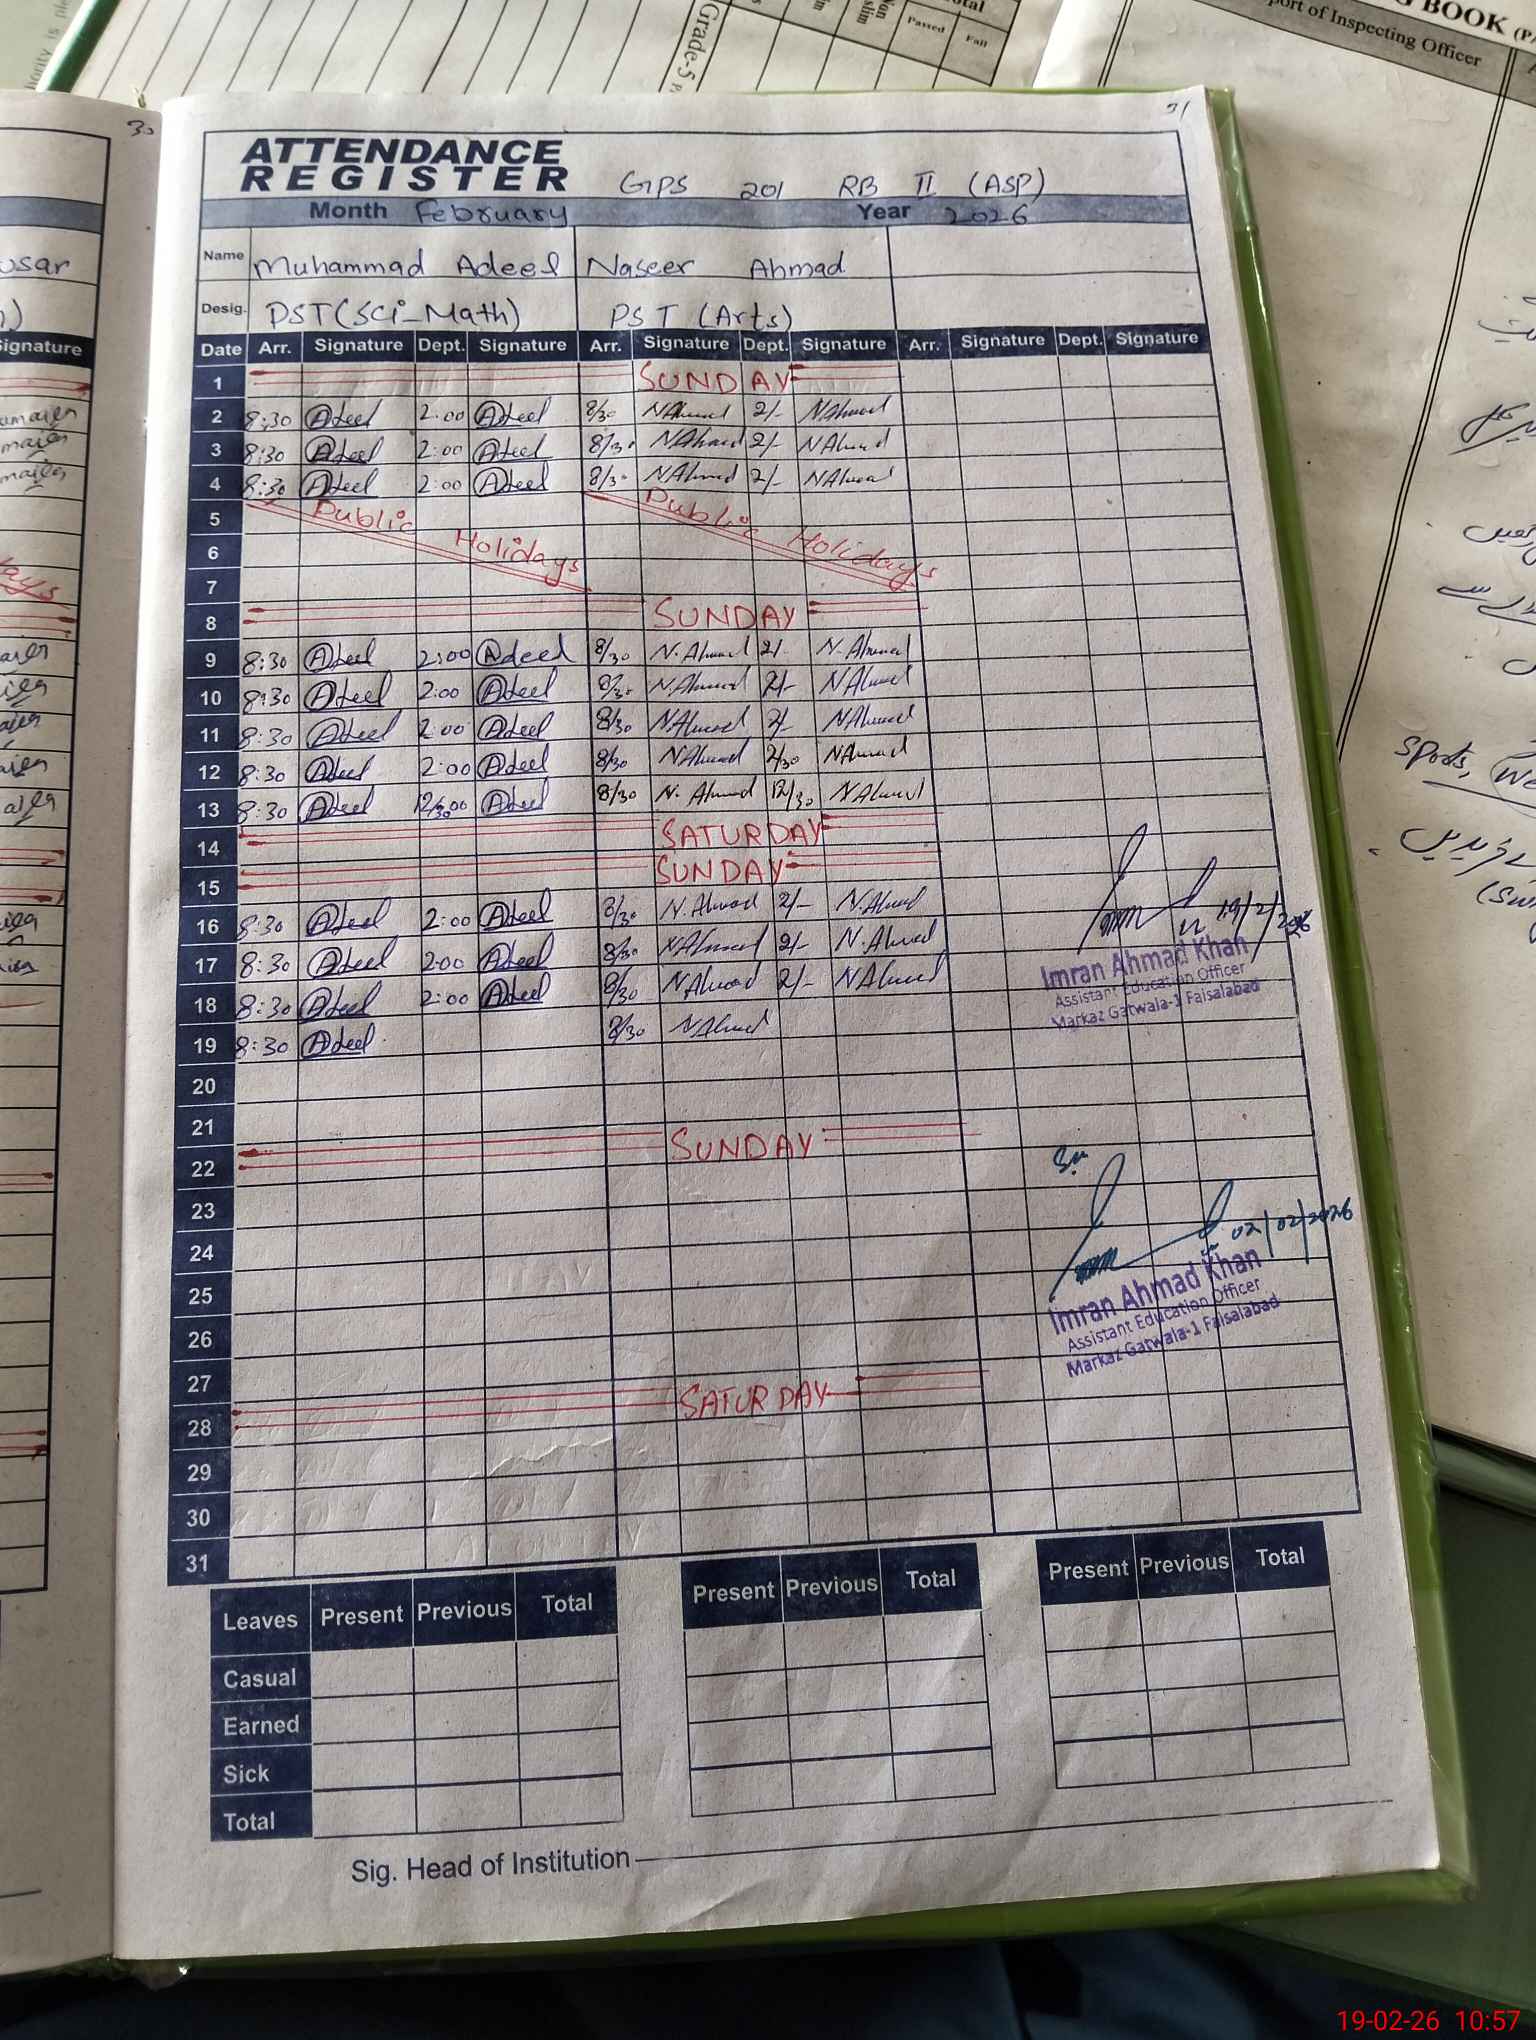 Grade-5
Passed Fail
BOOK
Report of Inspecting Officer
30
31
ATTENDANCE
REGISTER GPS 201 RB II (ASP)
Month February Year 2026
Name Muhammad Adeel Naseer Ahmad
Desig. PST(Sci-Math) PST (Arts)
Signature
Date Arr. Signature Dept. Signature Arr. Signature Dept. Signature Arr. Signature Dept. Signature
1 SUNDAY
2 8:30 Adeel 2:00 Adeel 8/30 NAhmad 2/- NAhmad
3 8:30 Adeel 2:00 Adeel 8/30 NAhmad 2/- NAhmad
4 8:30 Adeel 2:00 Adeel 8/30 NAhmad 2/- NAhmad
5 Public Public
6 Holidays Holidays
7
8 SUNDAY
9 8:30 Adeel 2:00 Adeel 8/30 N.Ahmad 2/- N.Ahmad
10 8:30 Adeel 2:00 Adeel 8/30 N.Ahmad 2/- NAhmad
11 8:30 Adeel 2:00 Adeel 8/30 NAhmad 2/- NAhmad
12 8:30 Adeel 2:00 Adeel 8/30 NAhmad 2/30 NAhmad
13 8:30 Adeel Adeel 8/30 N.Ahmad 12/30 NAhmad
14 SATURDAY
15 SUNDAY
16 8:30 Adeel 2:00 Adeel 8/30 N.Ahmad 2/- N.Ahmad
17 8:30 Adeel 2:00 Adeel 8/30 NAhmad 2/- N.Ahmad
18 8:30 Adeel 2:00 Adeel 8/30 NAhmad 2/- NAhmad
19 8:30 Adeel 8/30 NAhmad
20
21
22 SUNDAY
23
24
25
26
27
28 SATURDAY
29
30
31
19/2/2026
Imran Ahmad Khan
Assistant Education Officer
Markaz Gatwala-1 Faisalabad
02/02/2026
Imran Ahmad Khan
Assistant Education Officer
Markaz Gatwala-1 Faisalabad
Leaves Present Previous Total Present Previous Total Present Previous Total
Casual
Earned
Sick
Total
Sig. Head of Institution
Sports,
19-02-26 10:57